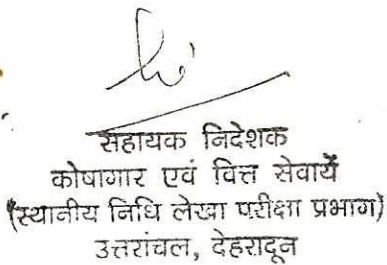 सहायक निदेशक
कोषागार एवं वित्त सेवायें
(स्थानीय निधि लेखा परीक्षा प्रभाग)
उत्तरांचल, देहरादून